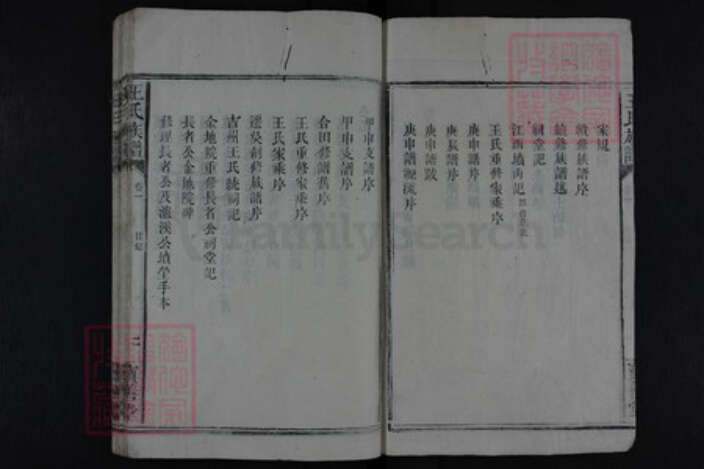 家規
續修族譜序
續修族譜述
祠堂記
江西墳山記
王氏重修家乘序
庚申譜序
庚辰譜序
庚申譜跋
庚申譜源流序
甲申支譜序
甲申支譜序
合田修譜舊序
王氏重修家乘序
王氏家乘序
遷吳創修族譜序
吉州王氏統祠記
金地院重修長者公祠堂記
長者公金地院碑
修理長者公及濂溪公墳塋手本
王氏族譜
卷一
目錄
二
FamilySearch